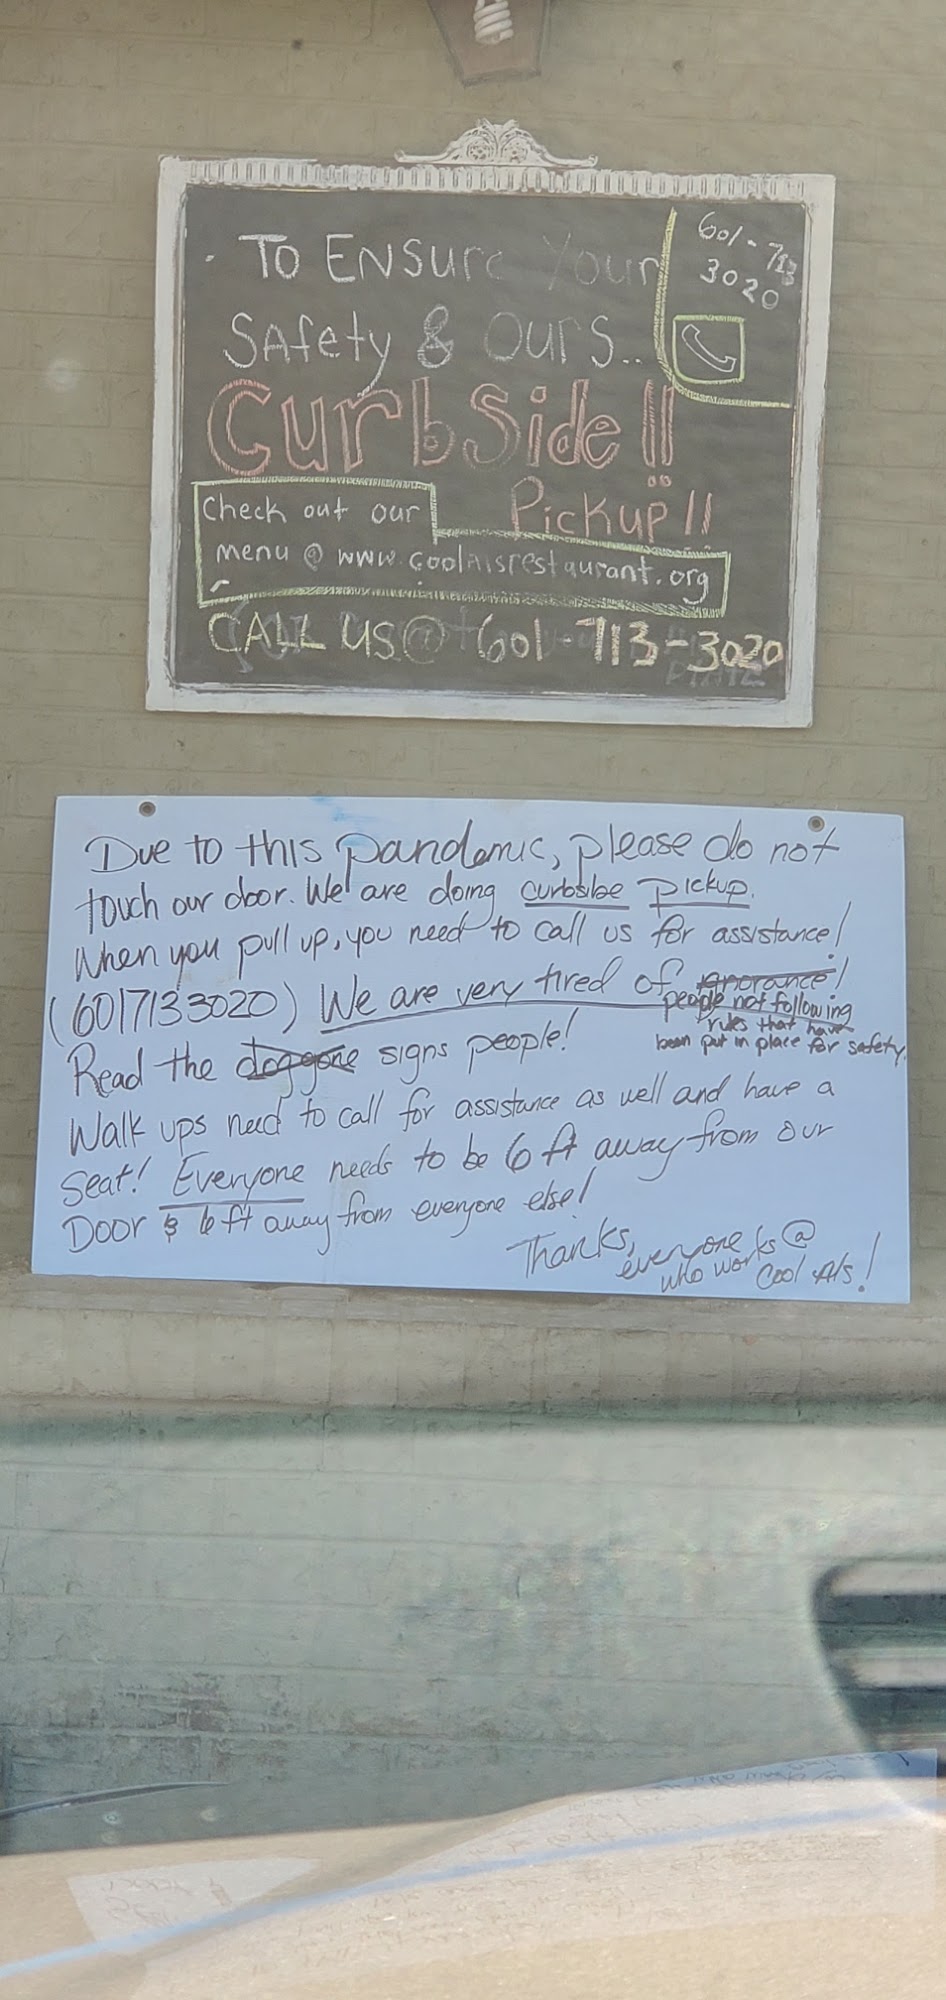 To Ensure Your
Safety & Ours..
601-713
3020
CurbSide!!
Pickup!!
Check out our
menu @ www.coolalsrestaurant.org
CALL US@ 601-713-3020
Due to this pandemic, please do not
touch our door. We are doing curbside pickup.
When you pull up, you need to call us for assistance!
(6017133020) We are very tired of ignorance!
people not following
rules that have
been put in place for safety.
Read the doggone signs people!
Walk ups need to call for assistance as well and have a
seat! Everyone needs to be 6 ft away from our
Door & 6 ft away from everyone else!
Thanks,
everyone
who works @
Cool Al's!